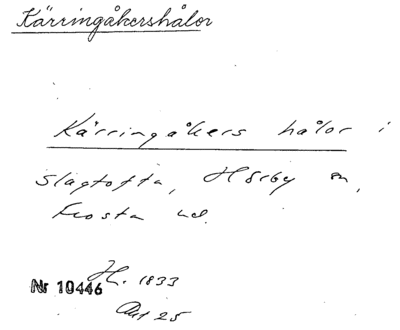 Kärringåkershålor
Kärringåkers hålor i
Slagtofta, Hörby sn,
Frosta hd.
H. 1833
Nr 10446
Akt 25